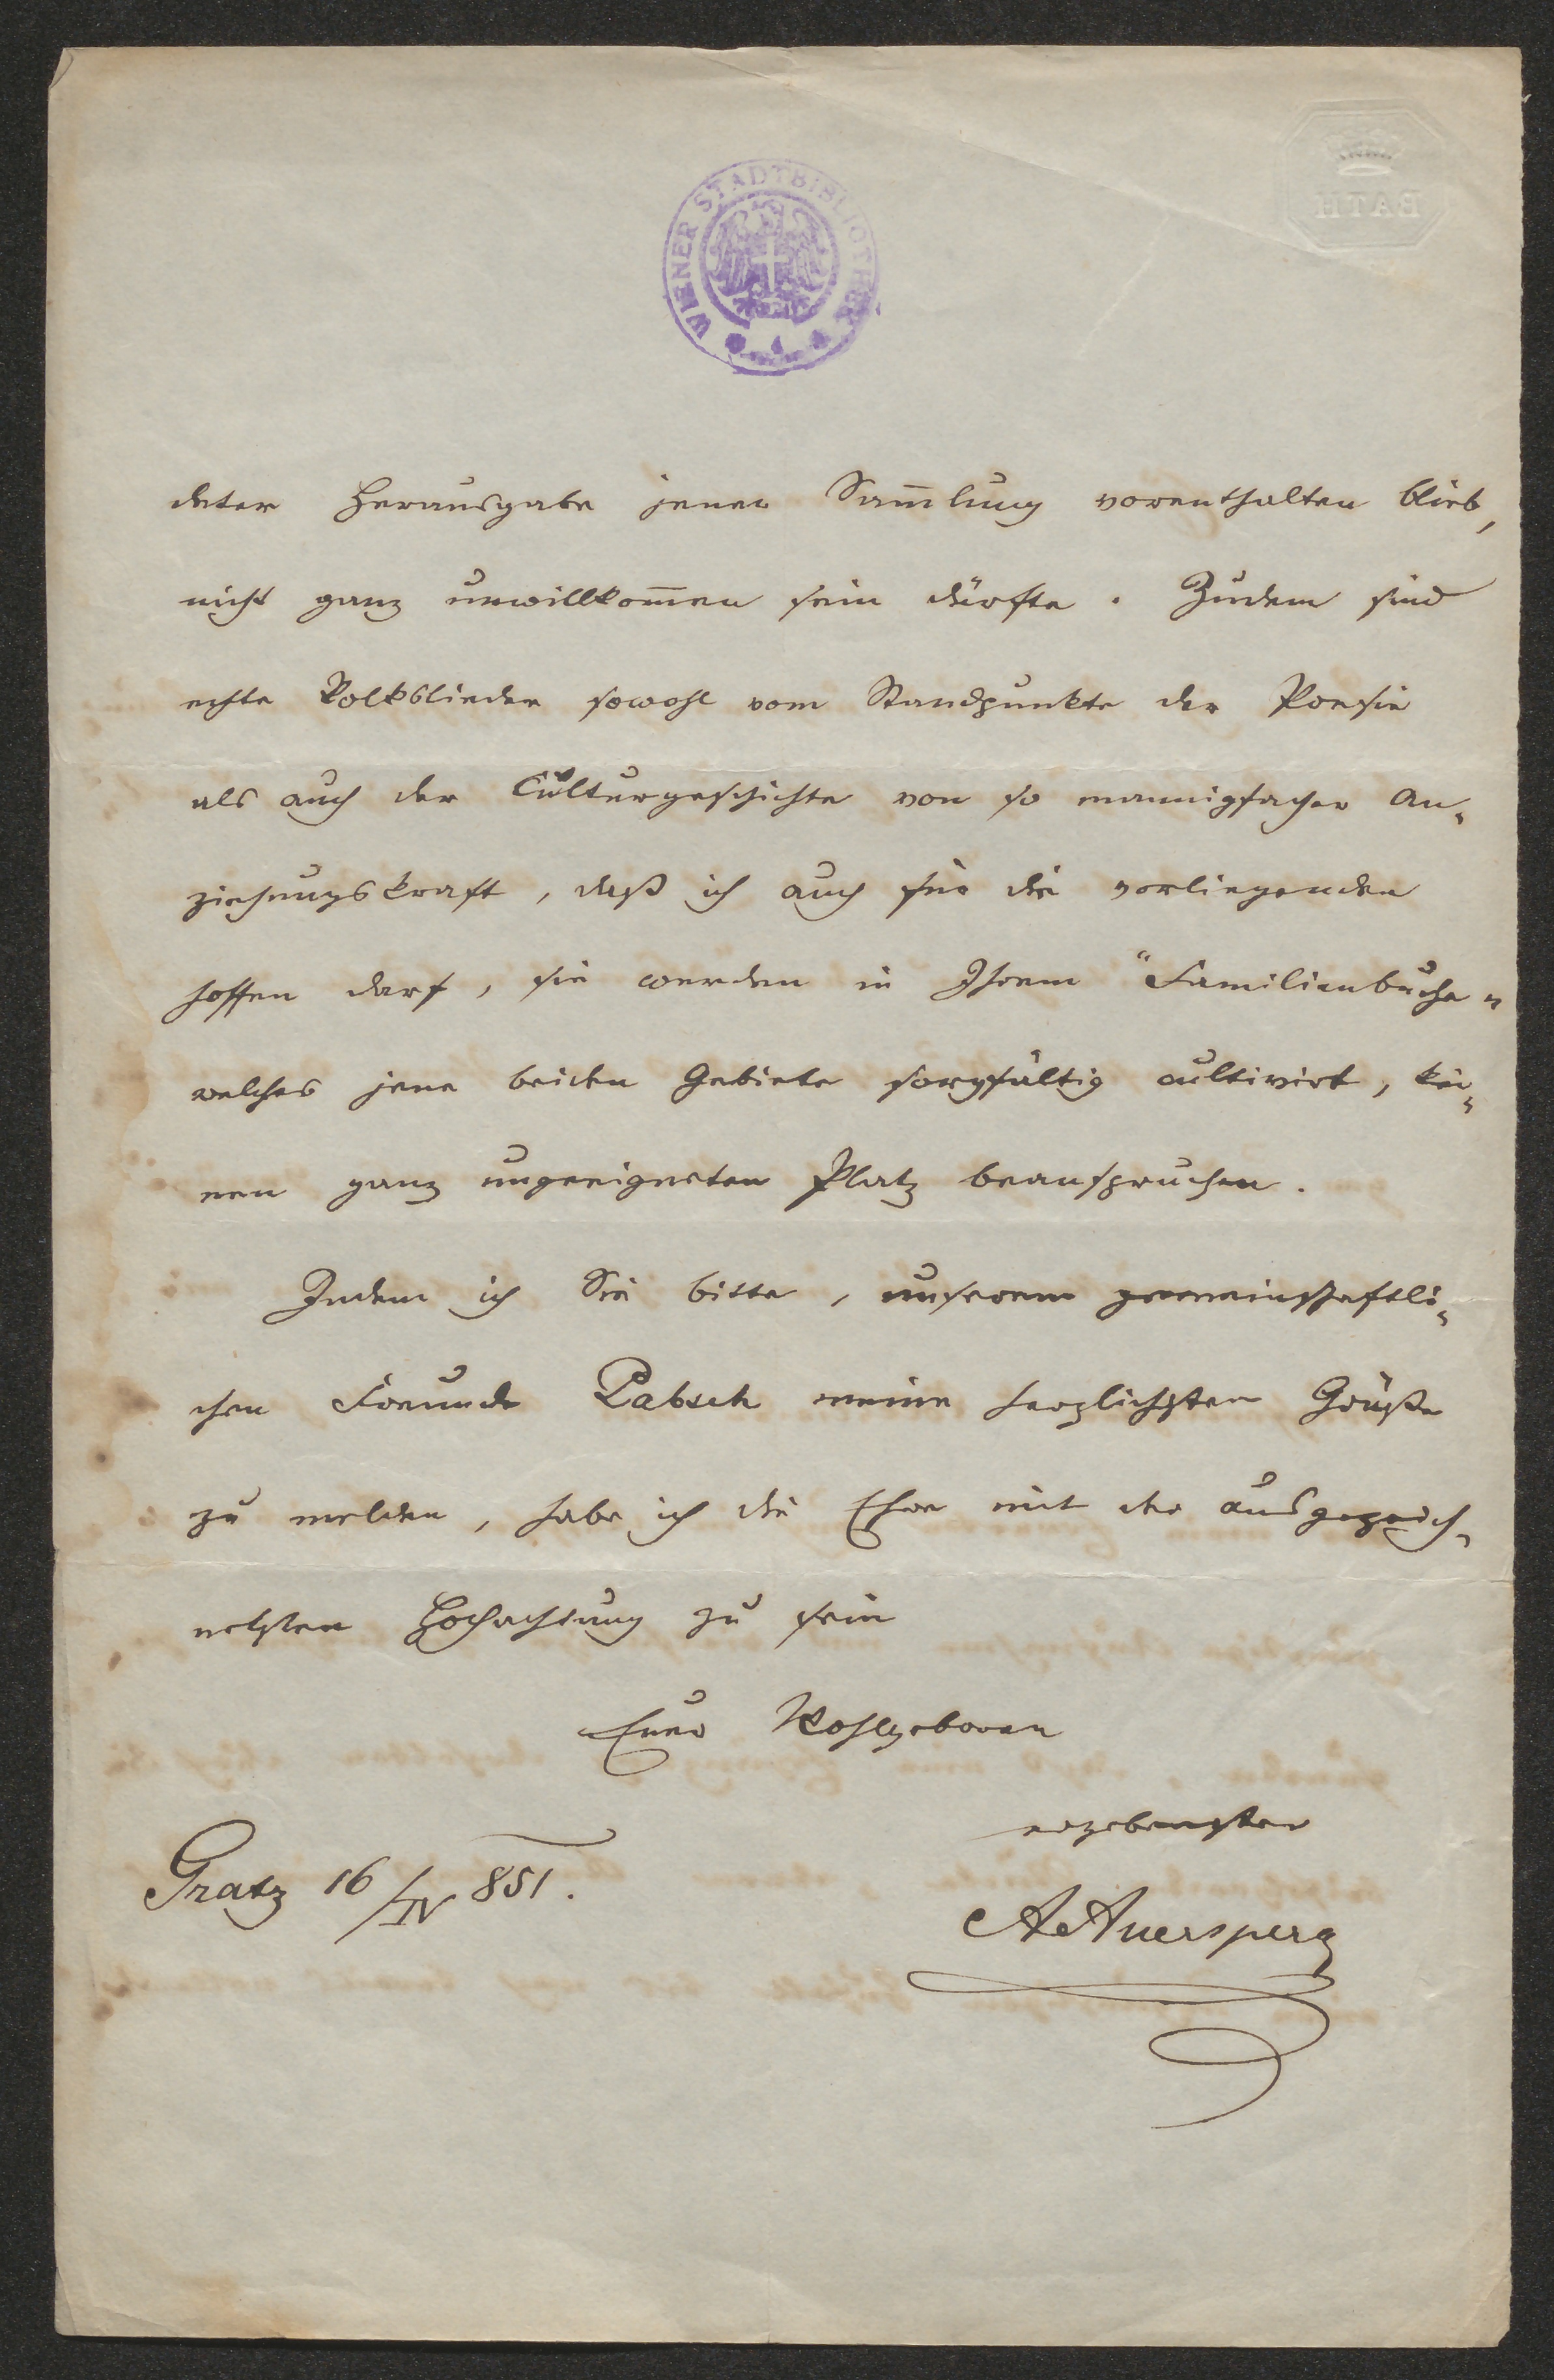 WIENER STADTBIBLIOTHEK
BATH
deter Herausgabe jener Sam̅lung vorenthalten blieb,
nicht ganz unwillkom̅en sein dürfte. Zudem sind
echte Volkslieder sowohl vom Standpunkte der Poesie
als auch der Culturgeschichte von so mannigfacher An-
ziehungskraft, daß ich auch für die vorliegenden
hoffen darf, sie werden in Ihrem "Familienbuche"
welches jene beiden Gebiete sorgfältig cultivirt, kei-
nen ganz ungeeigneten Platz beanspruchen.
Indem ich Sie bitte, unserem gemeinschaftli-
chen Freunde Pabsch meine herzlichsten Grüße
zu melden, habe ich die Ehre mit der ausgezeich-
netsten Hochachtung zu sein
Euer Wohlgeboren
ergebenster
Gratz 16/IV 851.
AAuersperg